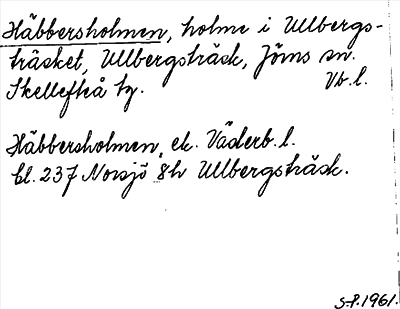 Häbbersholmen, holme i Ullbergs-
träsket, Ullbergsträsk, Jörns sn.
Skellefteå tg. Vb. l.
Häbbersholmen, ek. Väderb. l.
bl. 237 Norsjö 8h Ullbergsträsk.
S-P. 1961.